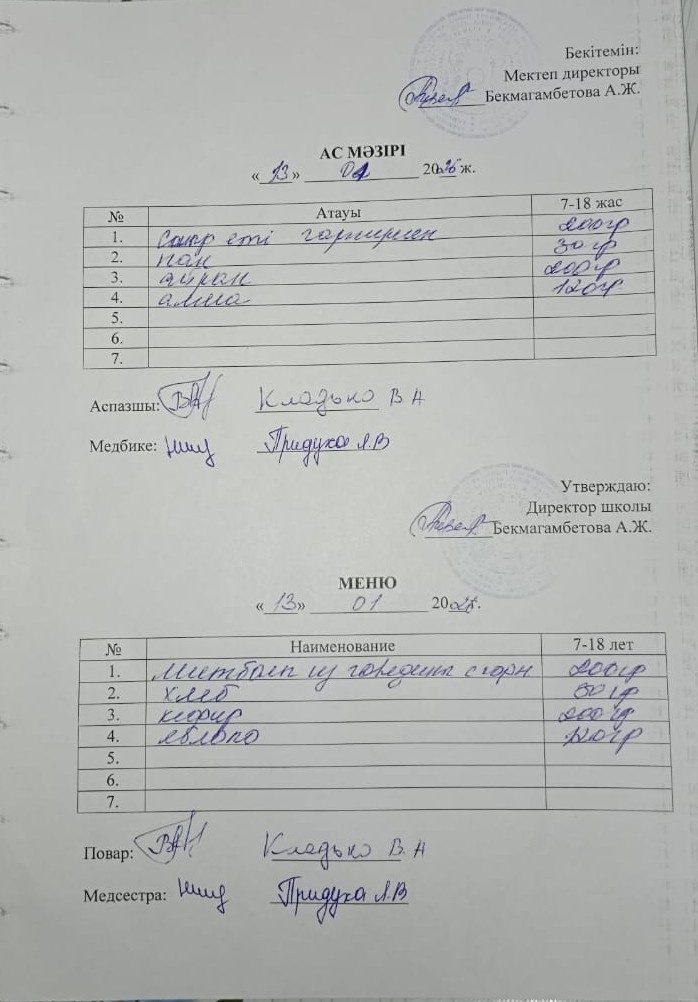 Бекітемін:
Мектеп директоры
Бекмагамбетова А.Ж.
АС МӘЗІРІ
«13» 01 2026 ж.
№ Атауы 7-18 жас
1. сиыр еті гарнирмен 200гр
2. нан 30гр
3. айран 200гр
4. алма 120гр
5.
6.
7.
Аспазшы: Кладько В А
Медбике: Придуха Л.В
Утверждаю:
Директор школы
Бекмагамбетова А.Ж.
МЕНЮ
«13» 01 202
№ Наименование 7-18 лет
1. Митболы из говядины с гарн 200гр
2. хлеб 30гр
3. кефир 200гр
4. яблоко 120гр
5.
6.
7.
Повар: Кладько В. А
Медсестра: Придуха Л.В